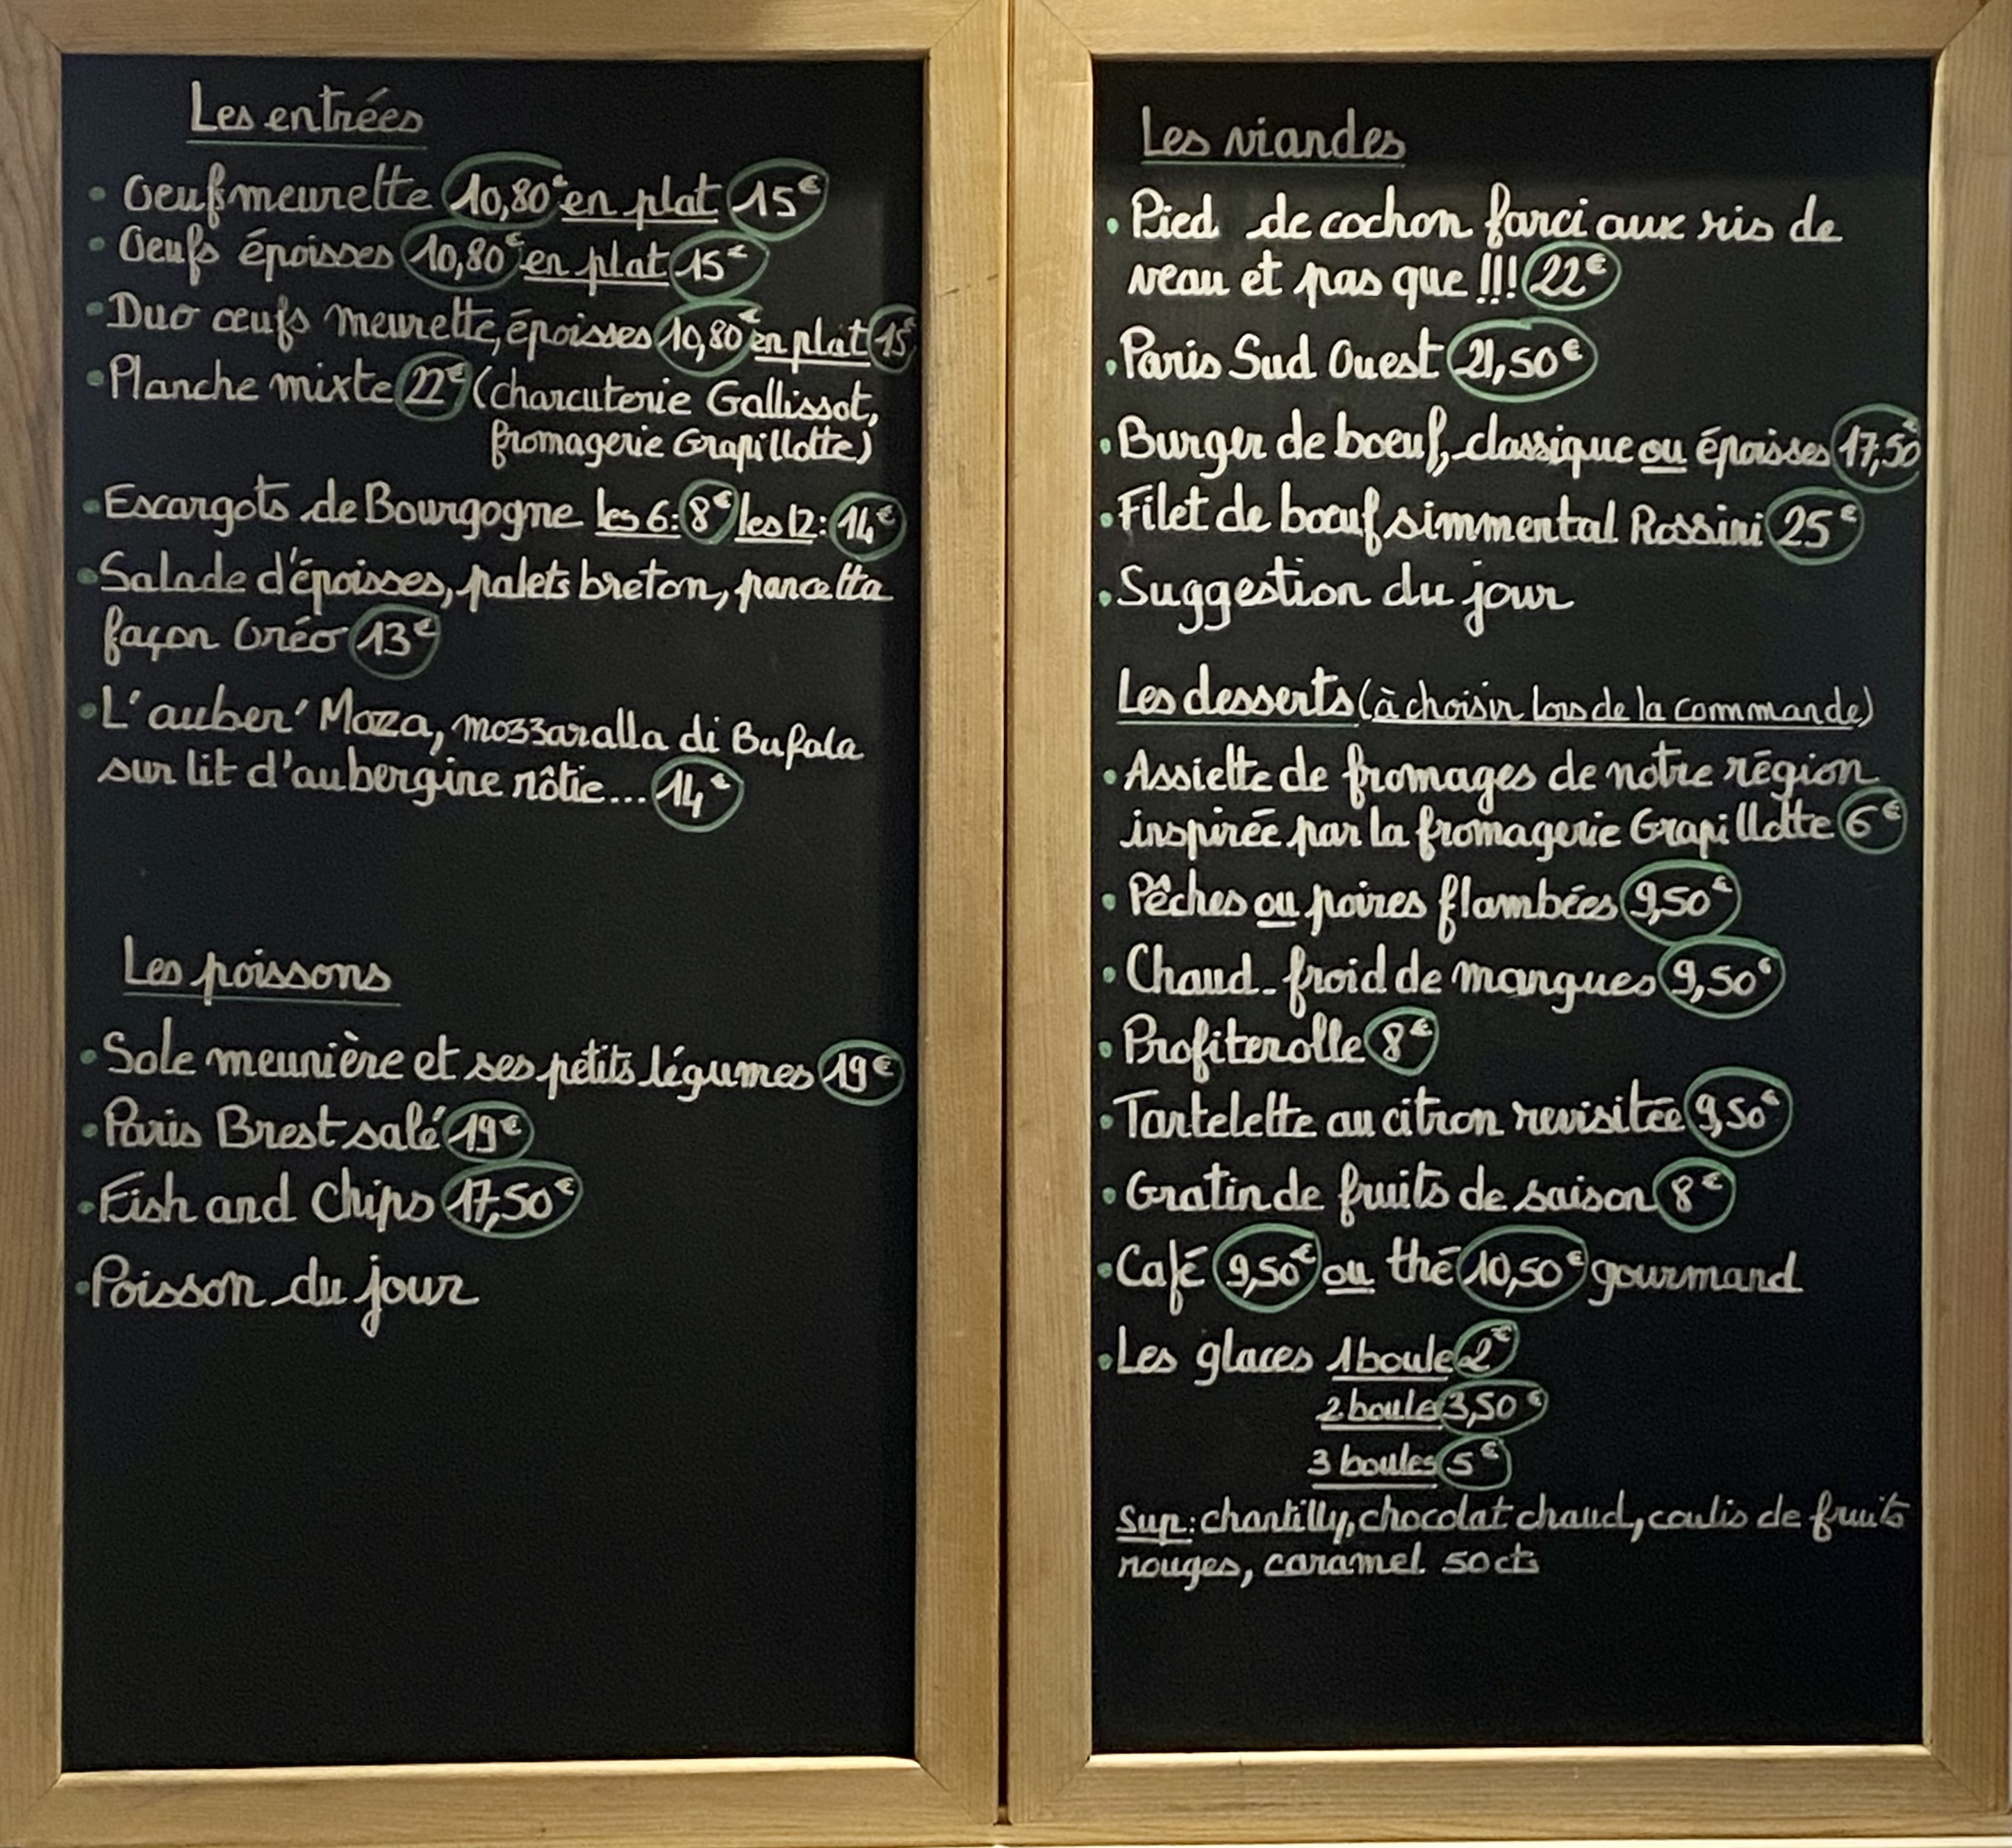 Les entrées
• Oeufs meurette 10,80€ en plat 15€
• Oeufs époisses 10,80€ en plat 15€
• Duo œufs meurette, époisses 10,80€ en plat 15€
• Planche mixte 22€ (charcuterie Gallissot,
fromagerie Grapillotte)
• Escargots de Bourgogne les 6: 8€ les 12: 14€
• Salade d'époisses, palets breton, pancetta
façon Oréo 13€
• L'auber' Mozza, mozzaralla di Bufala
sur lit d'aubergine rôtie... 14€
Les poissons
• Sole meunière et ses petits légumes 19€
• Paris Brest salé 19€
• Fish and Chips 17,50€
• Poisson du jour
Les viandes
• Pied de cochon farci aux ris de
veau et pas que !!! 22€
• Paris Sud Ouest 21,50€
• Burger de boeuf, classique ou époisses 17,50€
• Filet de bœuf simmental Rossini 25€
• Suggestion du jour
Les desserts (à choisir lors de la commande)
• Assiette de fromages de notre région
inspirée par la fromagerie Grapillotte 6€
• Pêches ou poires flambées 9,50€
• Chaud-froid de mangues 9,50€
• Profiterolle 8€
• Tartelette au citron revisitée 9,50€
• Gratin de fruits de saison 8€
• Café 9,50€ ou thé 10,50€ gourmand
• Les glaces 1 boule 2€
2 boules 3,50€
3 boules 5€
Sup: chantilly, chocolat chaud, coulis de fruits
rouges, caramel 50cts